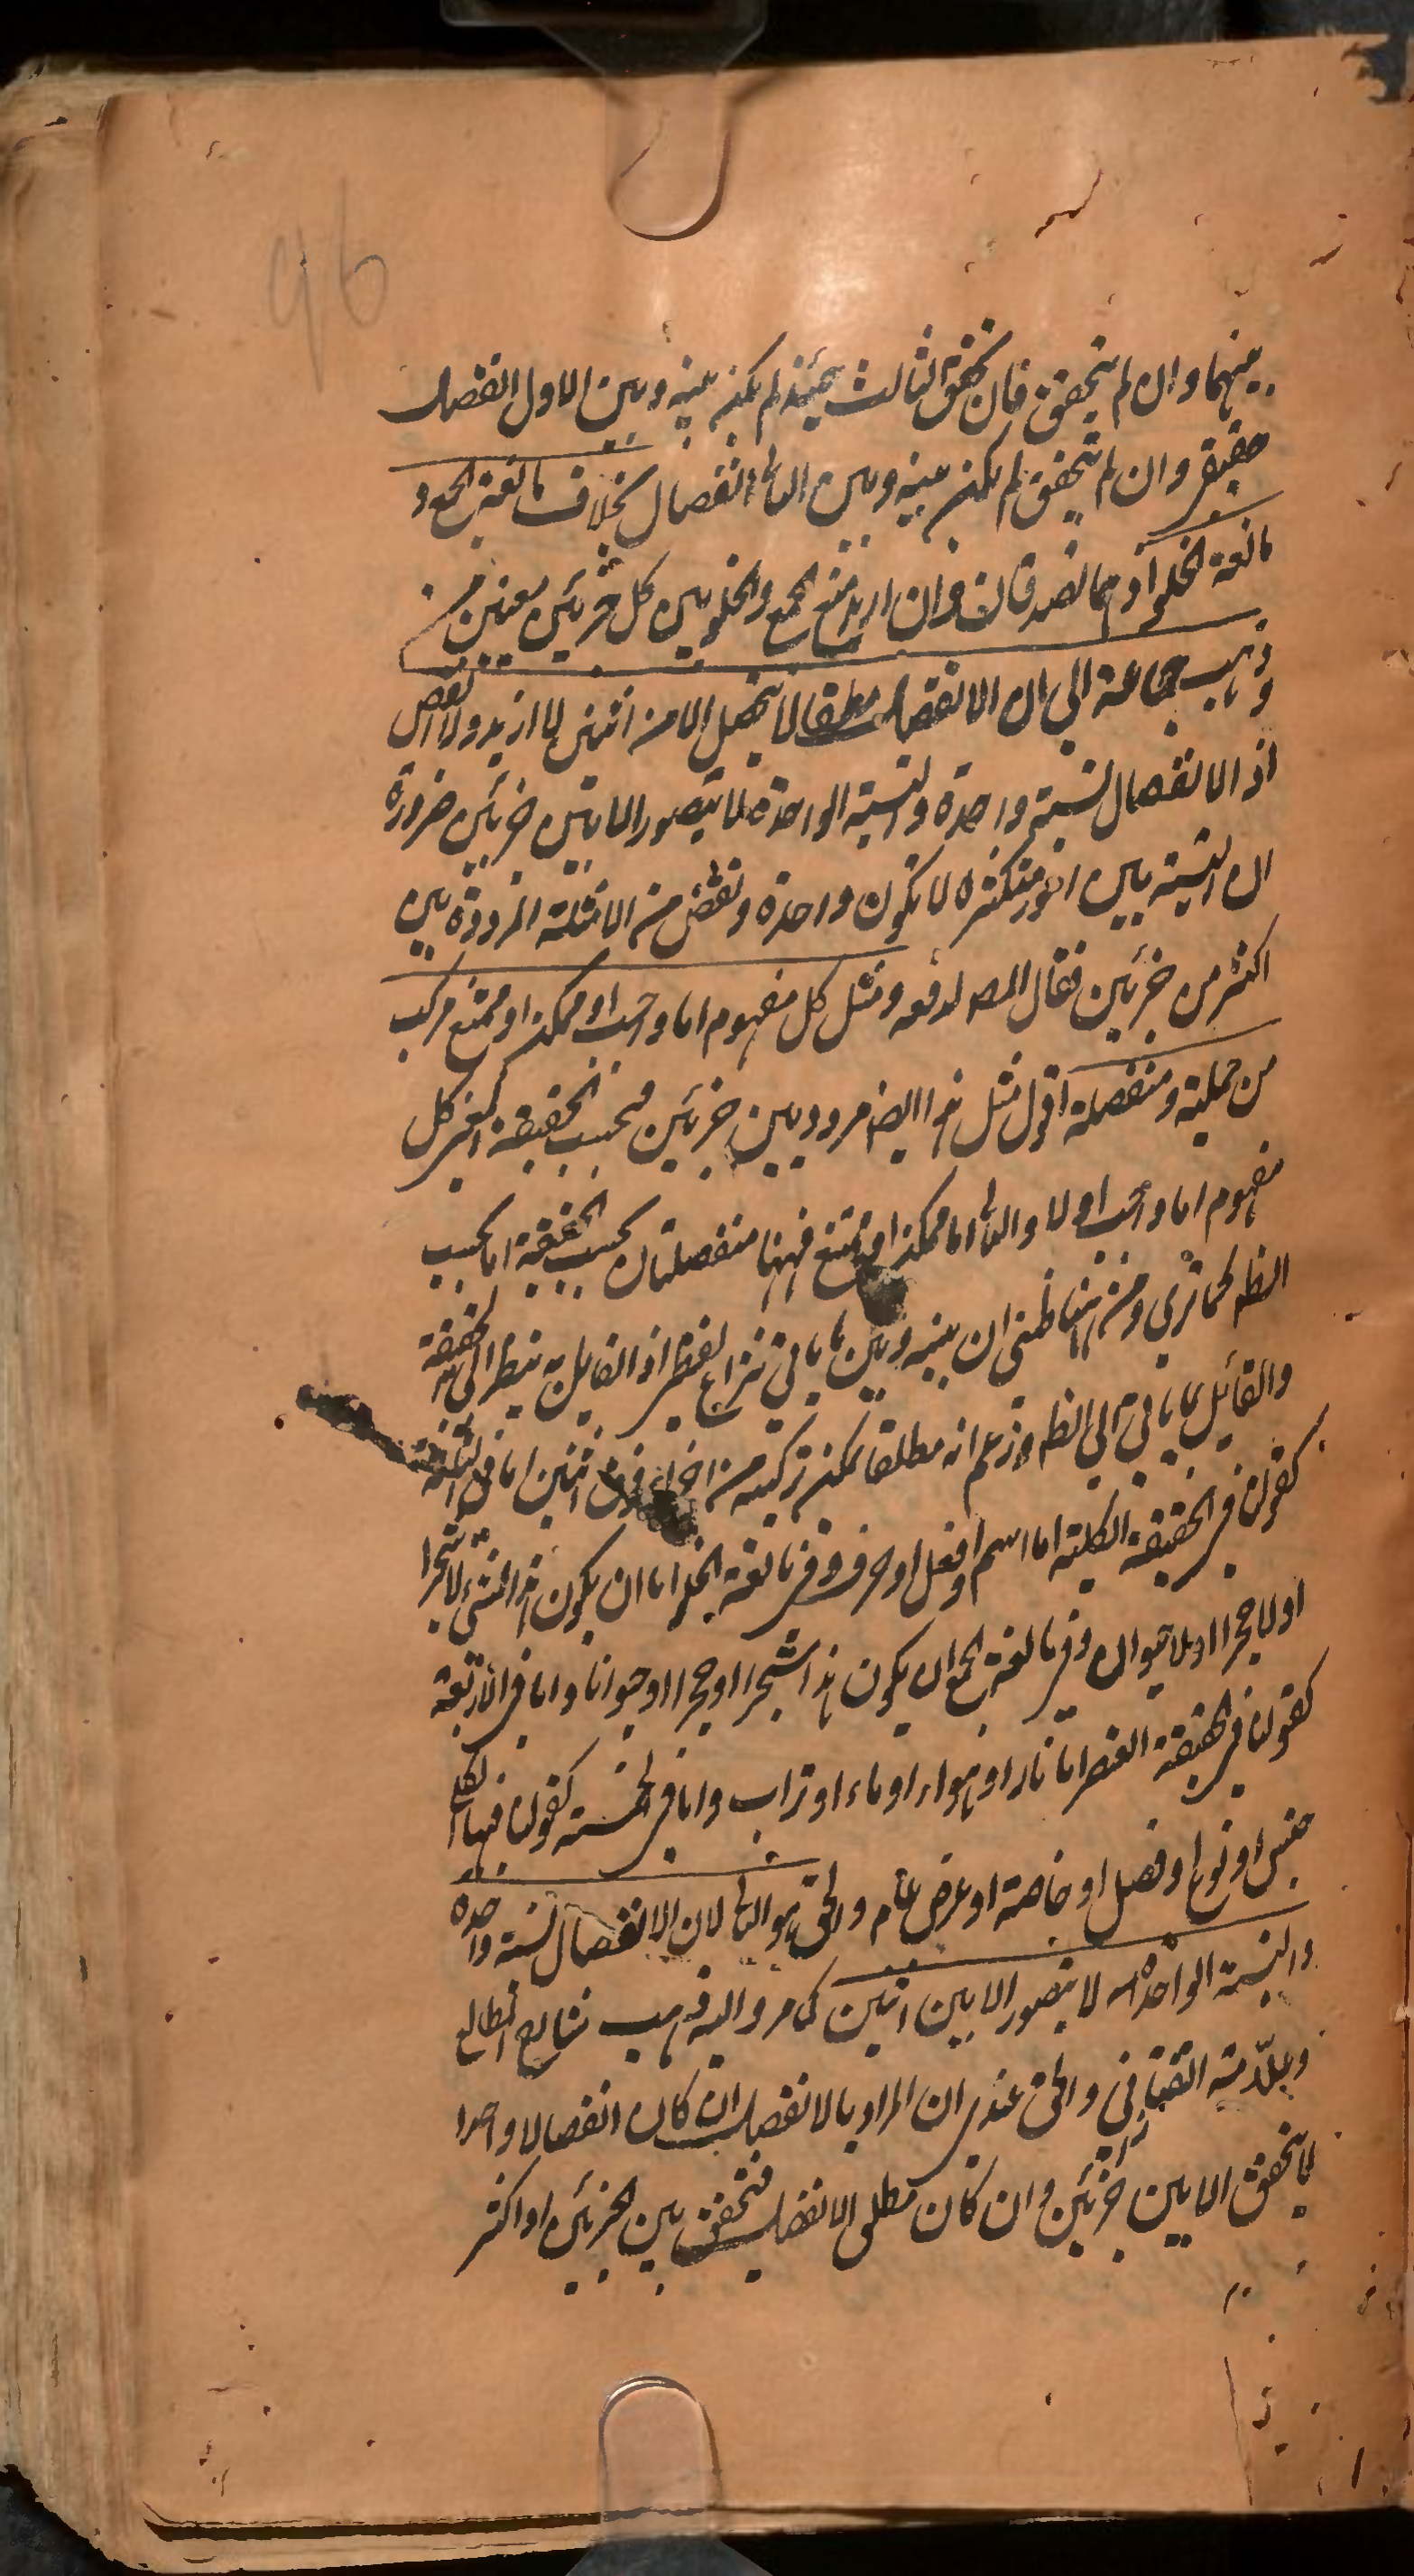 96
بينهما وان لم يتحقق فان تحقق الثالث حينئذ لم يكن بينه وبين الاول انفصال
حقيقي وان لم يتحقق لم يكن بينه وبين الثاني انفصال بخلاف مانعة الجمع و
مانعة الخلو اذ هما تصدقان وان اريد منع الجمع والخلو بين كل جزئين معينين منـ
وذهب جماعة الى ان الانفصال مطلقا لا يتحصل الا من اثنين لا ازيد ولا انقص
اذ الانفصال نسبة واحدة والنسبة الواحدة لا تتصور الا بين جزئين ضرورة
ان النسبة بين امور متكثرة لا تكون واحدة ونقض من الامثلة المرددة بين
اكثر من جزئين فقال المص لدفعه ومثل كل مفهوم اما واجب او ممكن او ممتنع مركب
من حملية ومنفصلة اقول مثل هذا ايضا مردد بين جزئين بحسب الحقيقة اعني كل
مفهوم اما واجب او لا والثاني اما ممكن او ممتنع فههنا منفصلتان بحسب الحقيقة اما بحسب
الظه كما ترى ومن ههنا ظني ان بينه وبين ما ياتي نزاع لفظي اذ القايل به ينظر الى الحقيقة
والقائل بما ياتي الى الظه وزعم انه مطلقا يمكن تركبه من اجزاء فوق اثنين اما في الثلثة
كقولنا في الحقيقة الكلمة اما اسم او فعل او حرف وفي مانعة الخلو اما ان يكون هذا الشئ لا شجرا
او لا حجرا او لا حيوان وفي مانعة الجمع ان يكون هذا شجرا او حجرا او حيوانا واما في الاربعة
كقولنا في الحقيقة العنصر اما نار او هواء او ماء او تراب واما في الخمسة كقولنا فيها الكلي
جنس او نوع او فصل او خاصة او عرض عام والحق هو الثاني لان الانفصال نسبة واحدة
والنسبة الواحدة لا يتصور الا بين اثنين كما مر واليه ذهب شارح المطالع
وعلامة التفتازاني والحق عندي ان المراد بالانفصال ان كان انفصالا واحدا
لا يتحقق الا بين جزئين وان كان مطلق الانفصال فتحقق بين الجزئين او اكثر